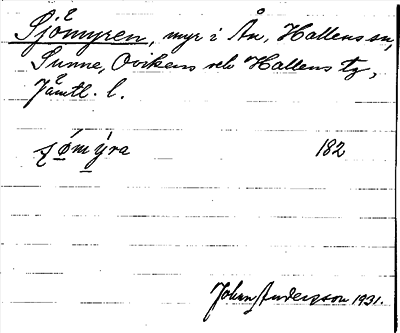 Sjömyren, myr i Ån, Hallens sn,
Sunne, Ovikens och Hallens tg,
Jämtl. l.
182
John Andersson 1931.